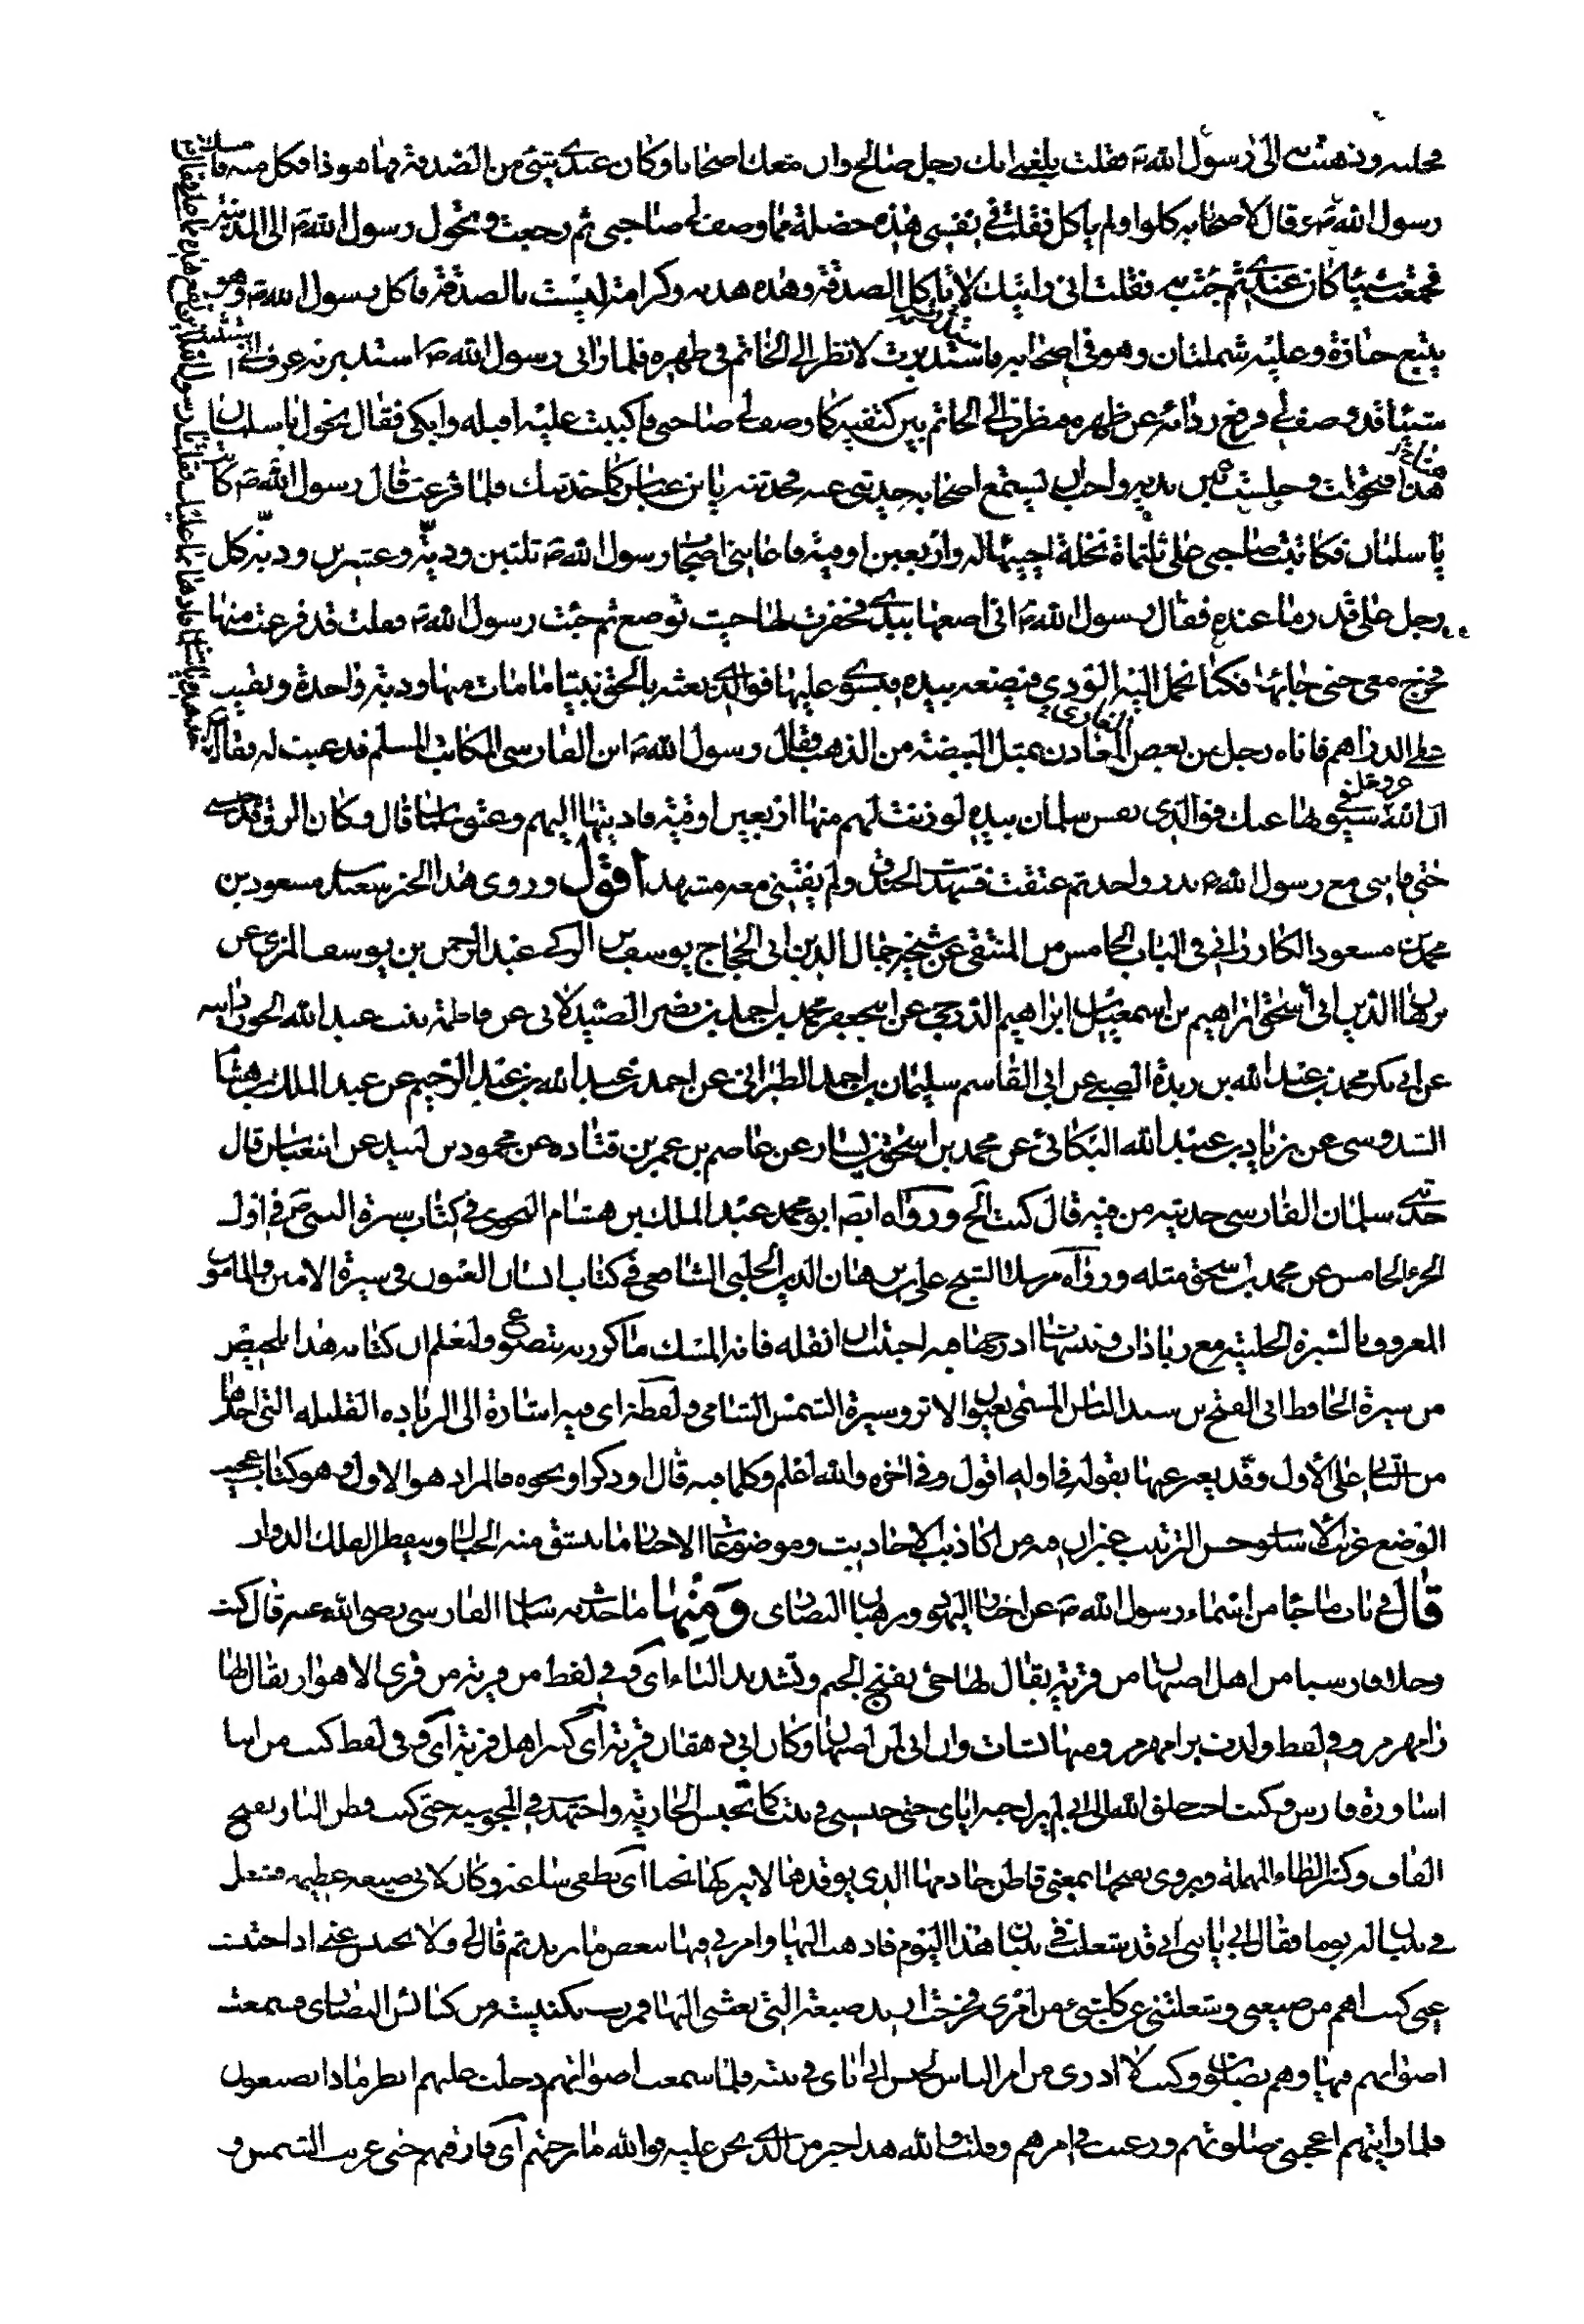 فحملته وذهبت به الى رسول الله ص فقلت بلغني انك رجل صالح وان معك اصحابا وكان عندي شيء من الصدقة فها هو ذا فكل منه فامسك
رسول الله ص وقال لاصحابه كلوا ولم ياكل فقلت في نفسي هذه خصلة مما وصف لي صاحبي ثم رجعت وتحول رسول الله ص الى المدينة
فجمعت شيئا كان عندي ثم جئته به فقلت اني رايتك لا تاكل الصدقة وهذه هدية وكرامة ليست بالصدقة فاكل رسول الله ص وهو
يتبع جنازة وعليه شملتان وهو في اصحابه فاستدبرت لانظر الى الخاتم في ظهره فلما راني رسول الله ص استدبرته عرف اني استثبت
شيئا قد وصف لي فرفع ردائه عن ظهره فنظرت الى الخاتم بين كتفيه كما وصف لي صاحبي فاكببت عليه اقبله وابكي فقال تحول يا سلمان
هنا فتحولت وجلست بين يديه واحب ان يستمع اصحابه حديثي عنه فحدثته يا بن عباس كما حدثتك فلما فرغت قال رسول الله ص كاتب
يا سلمان فكاتبت صاحبي على ثلثماة نخلة احييها له واربعين اوقية فاعانني اصحاب رسول الله ص ثلثين ودية وعشرين ودية كل
رجل على قدر ما عنده فقال رسول الله ص اني اضعها بيدي فحفرت لها حيث توضع ثم جئت رسول الله ص فقلت قد فرغت منها
فخرج معي حتى جائها فكنا نحمل اليه الودي فيضعه بيده ويسوي عليها فوالذي بعثه بالحق نبيا ما مات منها ودية واحدة وبقيت
علي الدراهم فاتاه رجل من بعض المعادن بمثل البيضة من الذهب فقال رسول الله ص اين الفارسي المكاتب المسلم فدعيت له فقال
ان الله عز وجل سيوفها عنك فوالذي نفس سلمان بيده لوزنت لهم منها اربعين اوقية فاديتها اليهم وعتق سلمان قال وكان الرق قد حبسني
حتى فاتني مع رسول الله ص بدر واحد ثم عتقت فشهدت الخندق ولم يفتني معه مشهد اقول وروى هذا الخبر سعيد بن مسعود بن
محمد بن مسعود الكازراني في الباب الخامس من المنتقى عن شيخه جمال الدين ابي الحجاج يوسف بن الزكي عبد الرحمن بن يوسف المزي عن
برهان الدين ابي اسحق ابراهيم بن اسمعيل بن ابراهيم الدرجي عن ابي جعفر محمد بن احمد بن نصر الصيدلاني عن فاطمة بنت عبد الله الجوزدانية
عن ابي بكر محمد بن عبد الله بن ريذة الضبي عن ابي القاسم سليمان بن احمد الطبراني عن احمد بن عبد الله بن عبد الرحيم عن عبد الملك بن هشام
السدوسي عن زياد بن عبد الله البكائي عن محمد بن اسحق بن يسار عن عاصم بن عمر بن قتاده عن محمود بن لبيد عن ابن عباس قال
حدثني سلمان الفارسي حديثه من فيه قال كنت الخ ورواه ايضا ابو محمد عبد الملك بن هشام النحوي في كتاب سيرة النبي ص في اول
الجزء الخامس عن محمد بن اسحق مثله ورواه مرسلا الشيخ علي بن برهان الدين الحلبي الشافعي في كتاب انسان العيون في سيرة الامين والمامون
المعروف بالسيرة الحلبية مع زيادات وتنبيهات ادرجها فيه احببت ان انقله فانه المسك ما كررته يتضوع وليعلم ان كتابه هذا تلخيص
من سيرة الحافظ ابي الفتح بن سيد الناس المسمى بعيون الاثر وسيرة الشمس الشامي ولفظة اي فيه اشارة الى الزيادة القليلة التي اخذها
من الثاني على الاول وقد يعبر عنها بقوله في اوله اقول وفي اخره والله اعلم وكلما فيه قال او ذكر او نحوه فالمراد هو الاول وهو كتاب عجيب
الوضع غريب الاسلوب حسن الترتيب غير ان فيه من اكاذيب الاحاديث وموضوعات الاخبار ما ينشق منه الجبال وينفطر الفلك الدوار
قال في باب ما جاء من اسماء رسول الله ص عن احبار اليهود ورهبان النصارى ومنها ما حدث به سلمان الفارسي رضي الله عنه قال كنت
رجلا فارسيا من اهل اصبهان من قرية يقال لها جي بفتح الجيم وتشديد الياء اي وفي لفظ من قرية من قرى الاهواز يقال لها
رامهرمز وفي لفظ ولدت برامهرمز ومنها نشات وان ابي لمن اصبهان وكان ابي دهقان قرية اي كبير اهل قرية اي وفي لفظ كنت من ابناء
اساورة فارس وكنت احب خلق الله الى ابي لم يزل حبه اياي حتى حبسني في بيت كما تحبس الجارية واجتهدت في المجوسية حتى كنت قطن النار بفتح
القاف وكسر الطاء المهملة ويروى بفتحها بمعنى قاطن خادمها الذي يوقدها لا يتركها تخبو اي تطفى ساعة وكان لابي ضيعة عظيمة فشغل
في بنيان له يوما فقال لي يا بني اني قد شغلت في بنيان هذا اليوم فاذهب اليها وامرني فيها ببعض ما يريد ثم قال لي ولا تحتبس عني اذا احتبست
عني كنت اهم من ضيعتي وشغلتني عن كل شيء من امري فخرجت اريد ضيعته التي بعثني اليها فمررت بكنيسة من كنائس النصارى فسمعت
اصواتهم فيها وهم يصلون وكنت لا ادري من امر الناس لحبس ابي اياي في بيته فلما سمعت اصواتهم دخلت عليهم انظر ماذا يصنعون
فلما رايتهم اعجبني صلوتهم ورغبت في امرهم وقلت والله هذا خير من الذي نحن عليه فوالله ما برحتهم اي فارقتهم حتى غربت الشمس و